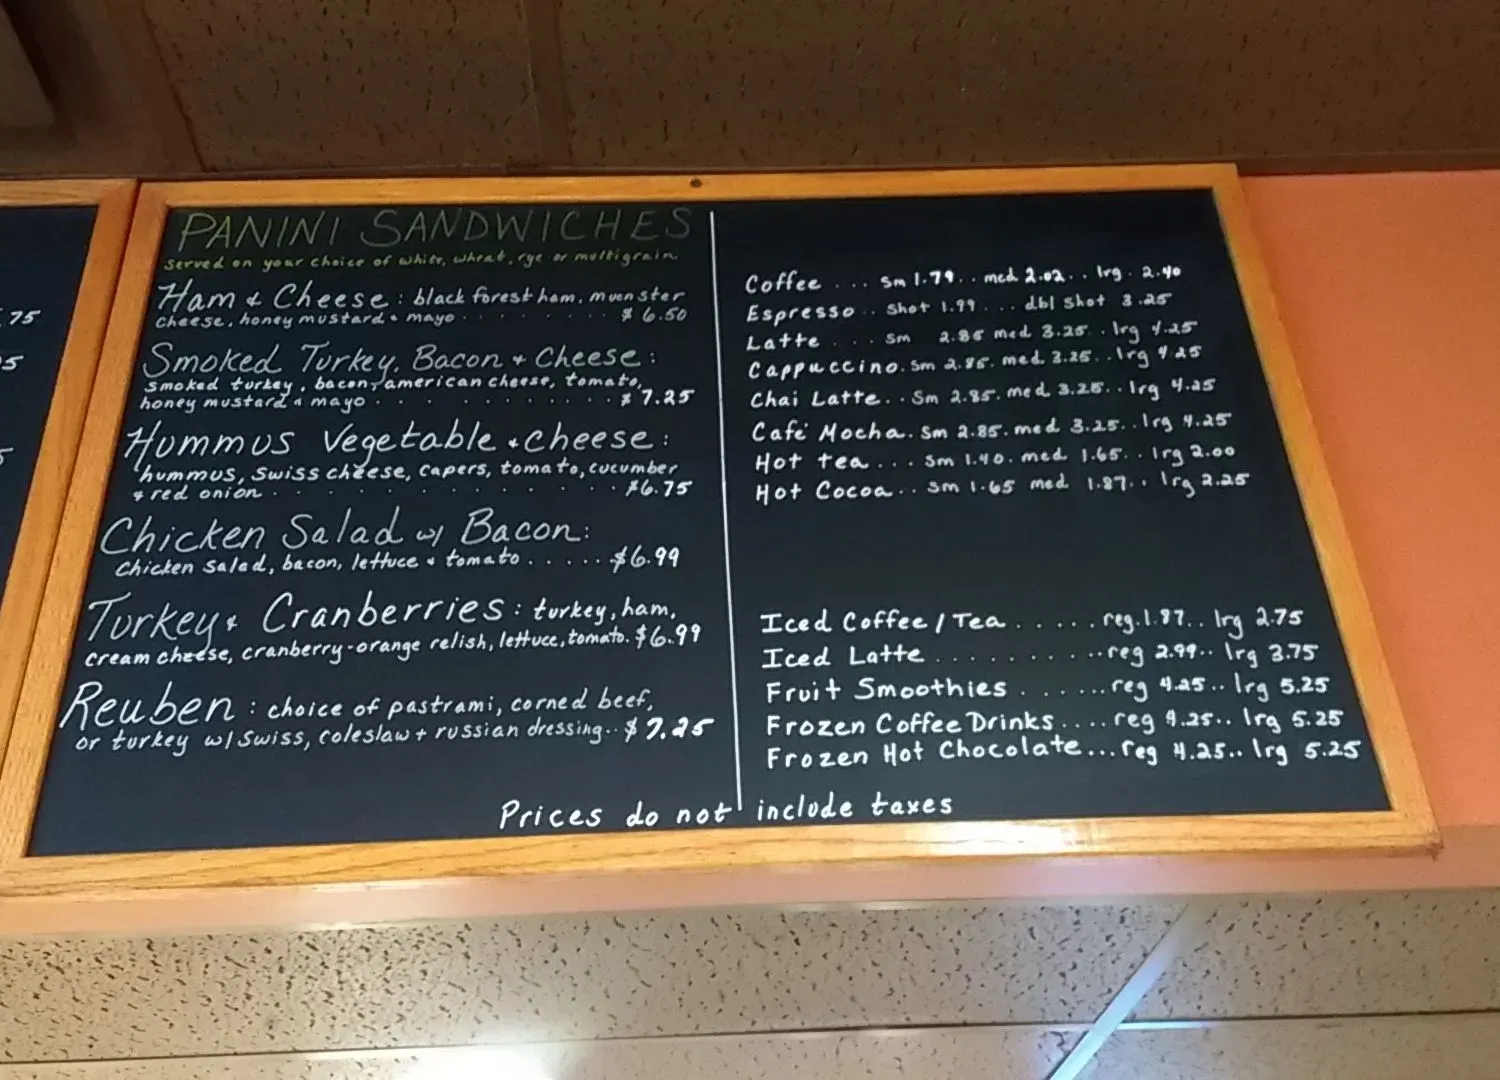 75
5
5
PANINI SANDWICHES
Served on your choice of white, wheat, rye or multigrain
Ham & Cheese: black forest ham, muenster
cheese, honey mustard & mayo . . . . . . . . $ 6.50
Smoked Turkey, Bacon & Cheese:
smoked turkey, bacon, american cheese, tomato,
honey mustard & mayo . . . . . . . . . . . . $ 7.25
Hummus Vegetable & cheese:
hummus, swiss cheese, capers, tomato, cucumber
& red onion . . . . . . . . . . . . . . $6.75
Chicken Salad w/ Bacon:
Chicken Salad, bacon, lettuce & tomato . . . . . $6.99
Turkey & Cranberries: turkey, ham,
cream cheese, cranberry-orange relish, lettuce, tomato. $6.99
Reuben: choice of pastrami, corned beef,
or turkey w/ Swiss, coleslaw + russian dressing.. $ 7.25
Coffee ... Sm 1.79.. med 2.02.. lrg. 2.40
Espresso.. Shot 1.99 ... dbl Shot 3.25
Latte ... Sm 2.85 med 3.25.. lrg 4.25
Cappuccino. Sm 2.85. med. 3.25.. lrg 4.25
Chai Latte.. Sm 2.85. med 3.25.. lrg 4.25
Café Mocha. Sm 2.85. med 3.25.. lrg 4.25
Hot tea... Sm 1.40. med 1.65.. lrg 2.00
Hot Cocoa.. Sm 1.65 med 1.87.. lrg 2.25
Iced Coffee / Tea ..... reg. 1.87.. lrg 2.75
Iced Latte .......... reg 2.99.. lrg 3.75
Fruit Smoothies ...... reg 4.25.. lrg 5.25
Frozen Coffee Drinks.... reg 4.25.. lrg 5.25
Frozen Hot Chocolate... reg 4.25.. lrg 5.25
Prices do not include taxes